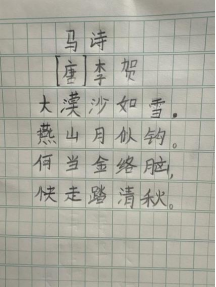 马诗
[唐]李贺
大漠沙如雪。
燕山月似钩。
何当金络脑,
快走踏清秋。